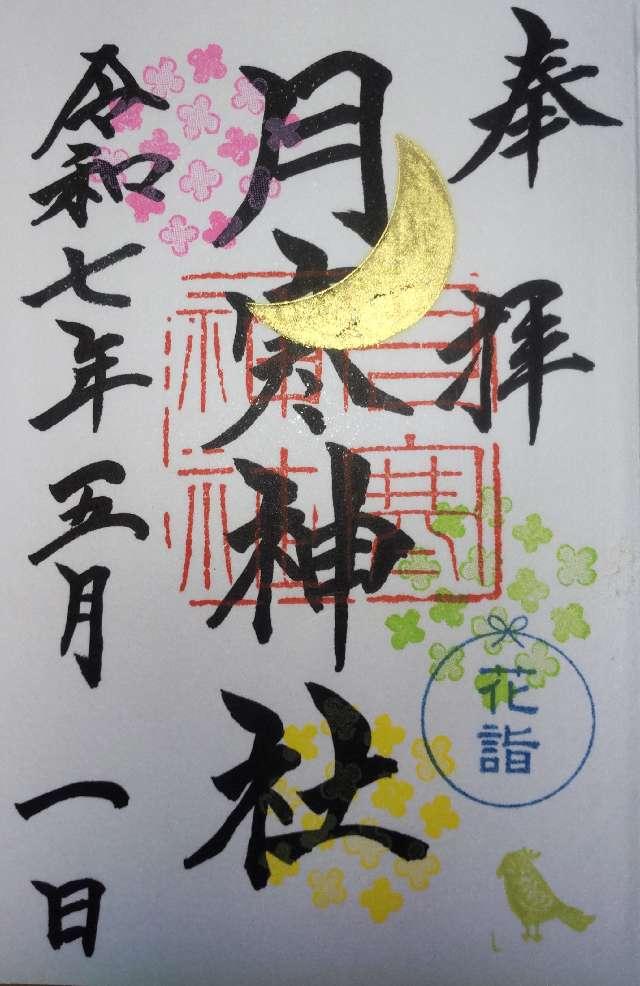 奉拝
月寒神社
月寒神社
花詣
令和七年五月一日